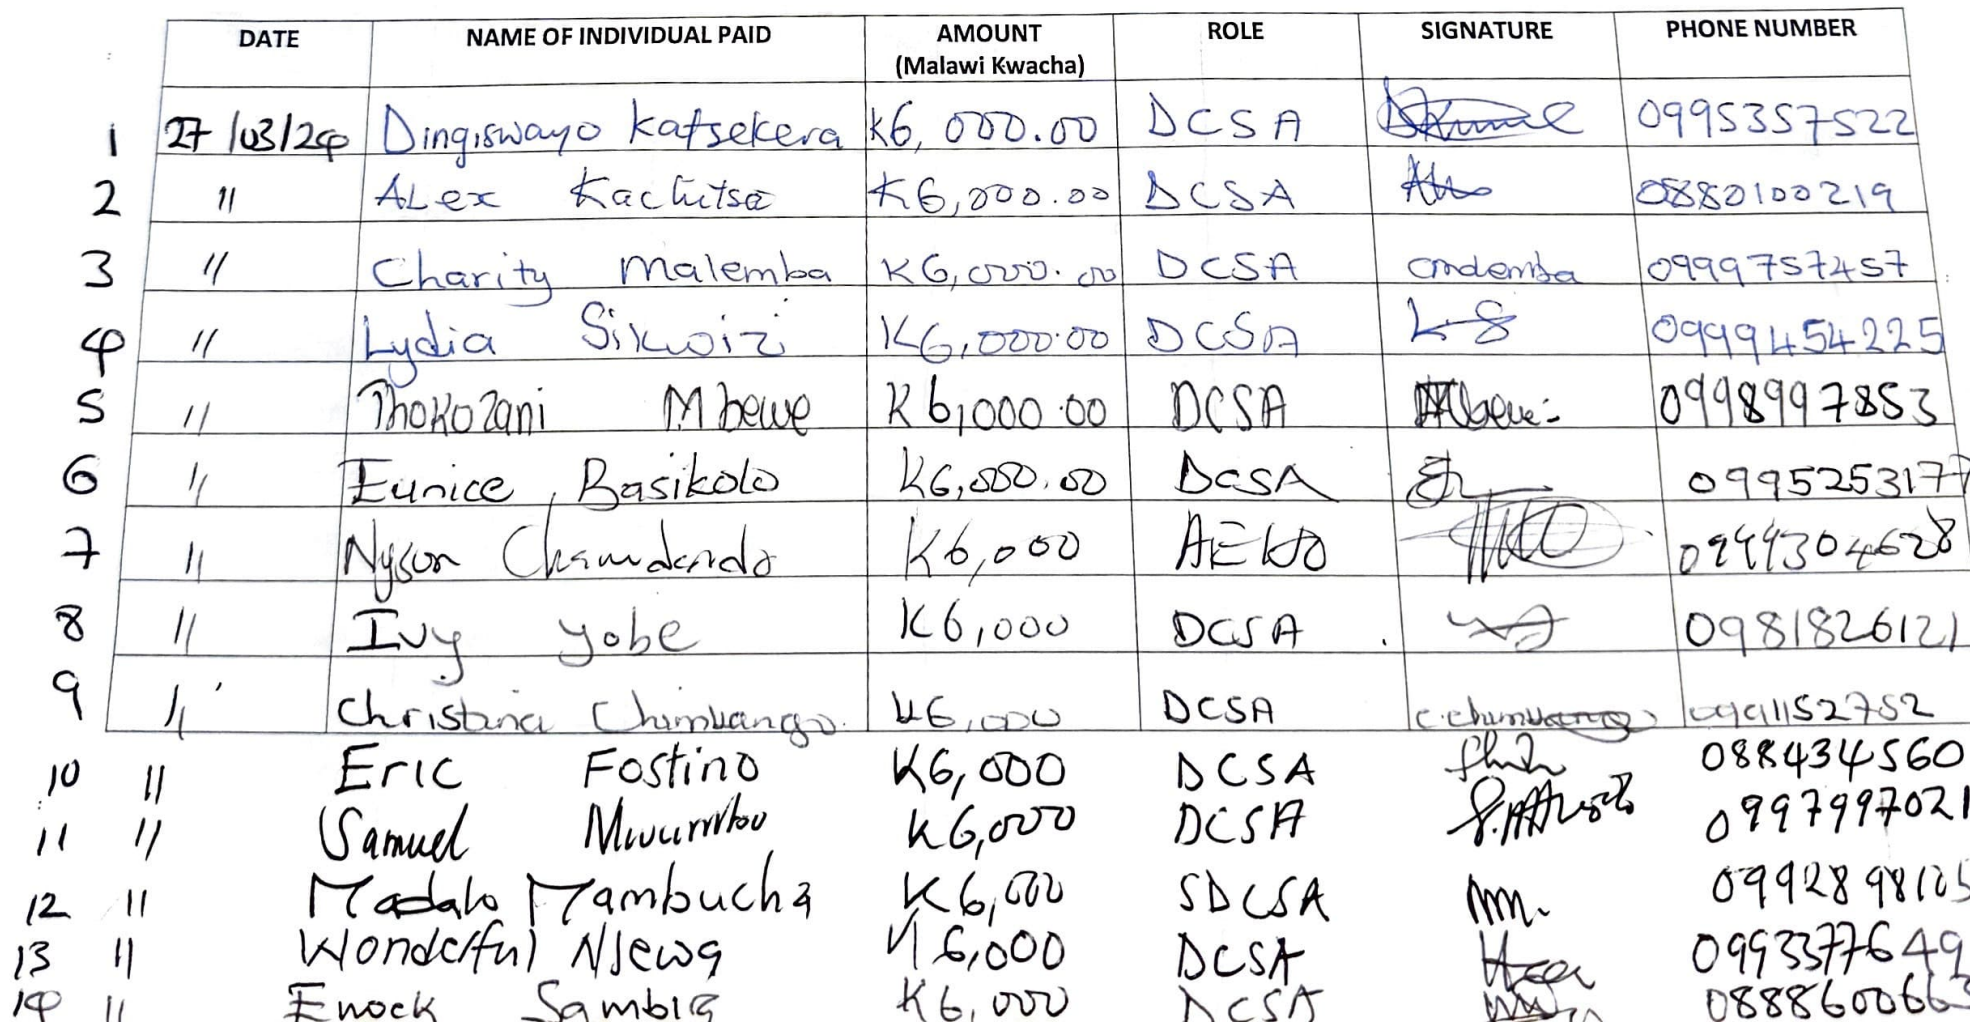 DATE NAME OF INDIVIDUAL PAID AMOUNT (Malawi Kwacha) ROLE SIGNATURE PHONE NUMBER
1 27/03/24 Dingiswayo Katsekera K6,000.00 DCSA 0995357522
2 " ALex Kachitsa K6,000.00 DCSA 0880100219
3 " Charity Malemba K6,000.00 DCSA cmalemba 0999757457
4 " Lydia Sikwizi K6,000.00 DCSA L S 0999454225
5 " Thokozani Mbewe K6,000.00 DCSA 0998997853
6 " Eunice Basikolo K6,000.00 DCSA 0995253177
7 " Nyson K6,000 0999304628
8 " Ivy Yobe K6,000 DCSA 0981826121
9 " Christina Chimkango K6,000 DCSA c.chimkango 0991152752
10 " Eric Fostino K6,000 DCSA 088434560
11 " Samuel K6,000 DCSA 0997997021
12 " Madalo Mambucha K6,000 SDCSA mm. 0992898105
13 " Wonderful Njewa K6,000 DCSA 0993377649
14 " Enock Sambia K6,000 DCSA 0888600663